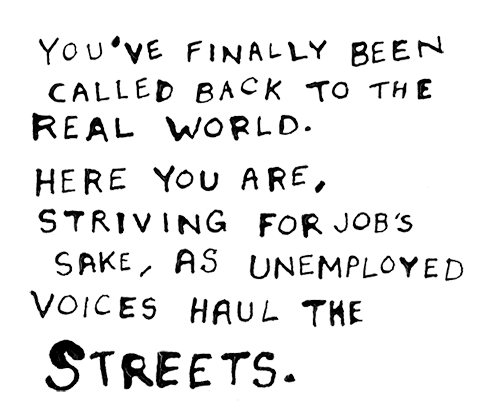 YOU'VE FINALLY BEEN
CALLED BACK TO THE
REAL WORLD.
HERE YOU ARE,
STRIVING FOR JOB'S
SAKE, AS UNEMPLOYED
VOICES HAUL THE
STREETS.